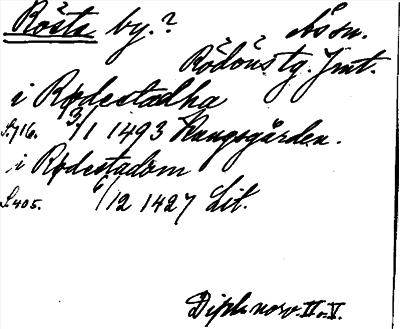 Röste by.? Ås sn.
Rödöns tg. Jmt.
i Rødestadha
S.716. 3/1 1493 Kungsgården.
i Rødestadom
S.405. 6/12 1427 Lit.
Dipl. norv. II o. V.